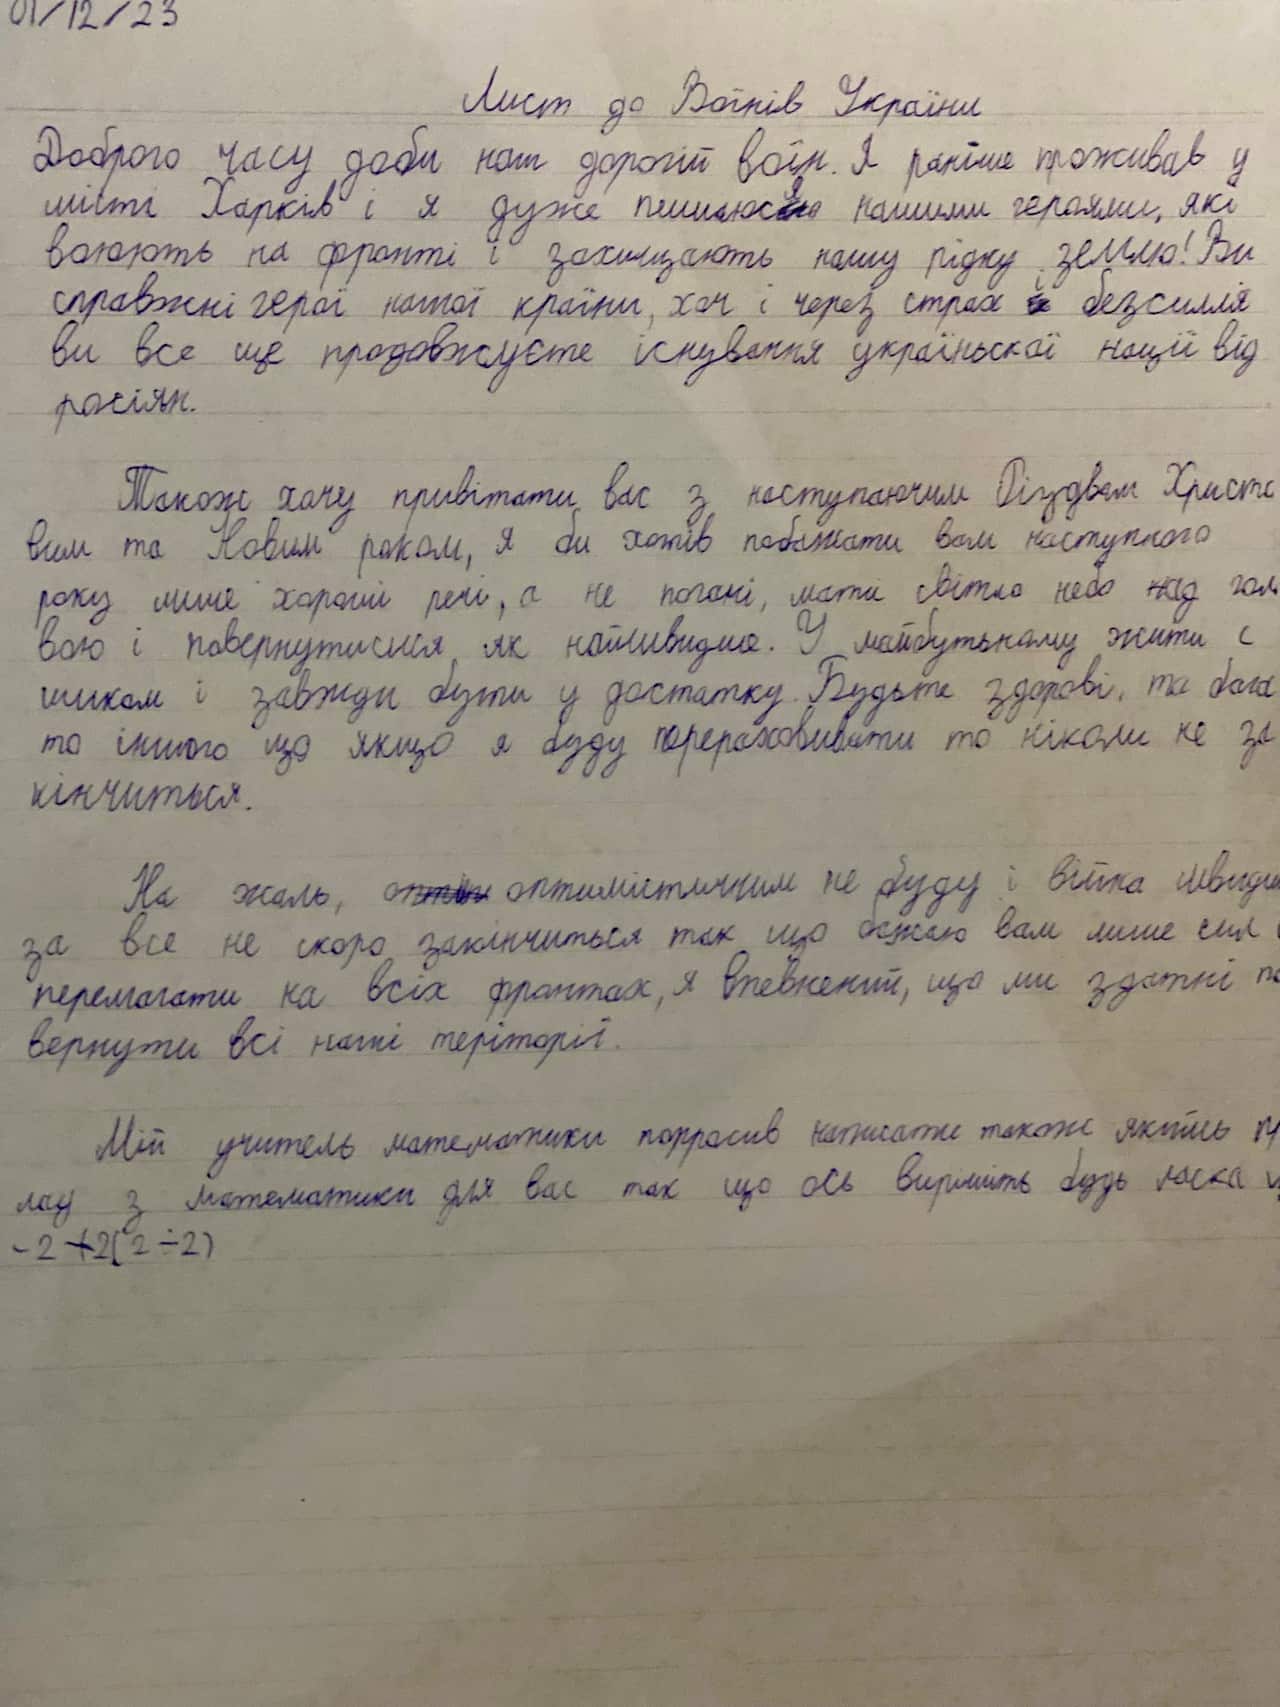 01/12/23
Лист до Воїнів України
Доброго часу доби наш дорогий воїн. Я раніше проживав у
місті Харків і я дуже пишаюся нашими героями, які
воюють на фронті і захищають нашу рідну землю! Ви
справжні герої нашої країни, хоч і через страх і безсилля
ви все ще продовжуєте існування української нації від
росіян.
Також хочу привітати вас з наступаючим Різдвом Христо
вим та Новим роком, я би хотів побажати вам наступного
року лише хороші речі, а не погані, мати світло небо над голо
вою і повернутися як найшвидше. У майбутньому жити с
шиком і завжди бути у достатку. Будьте здорові, та бага
то іншого що якщо я буду перераховивати то ніколи не за
кінчиться.
На жаль, оптимістичним не буду і війна швидше
за все не скоро закінчиться так що бажаю вам лише сил і
перемагати на всіх фронтах, я впевнений, що ми здатні по
вернути всі наші теріторії.
Мій учитель математики попросив написати також якийсь пр
лад з математики для вас так що ось вирішіть будь ласка
-2+2(2÷2)